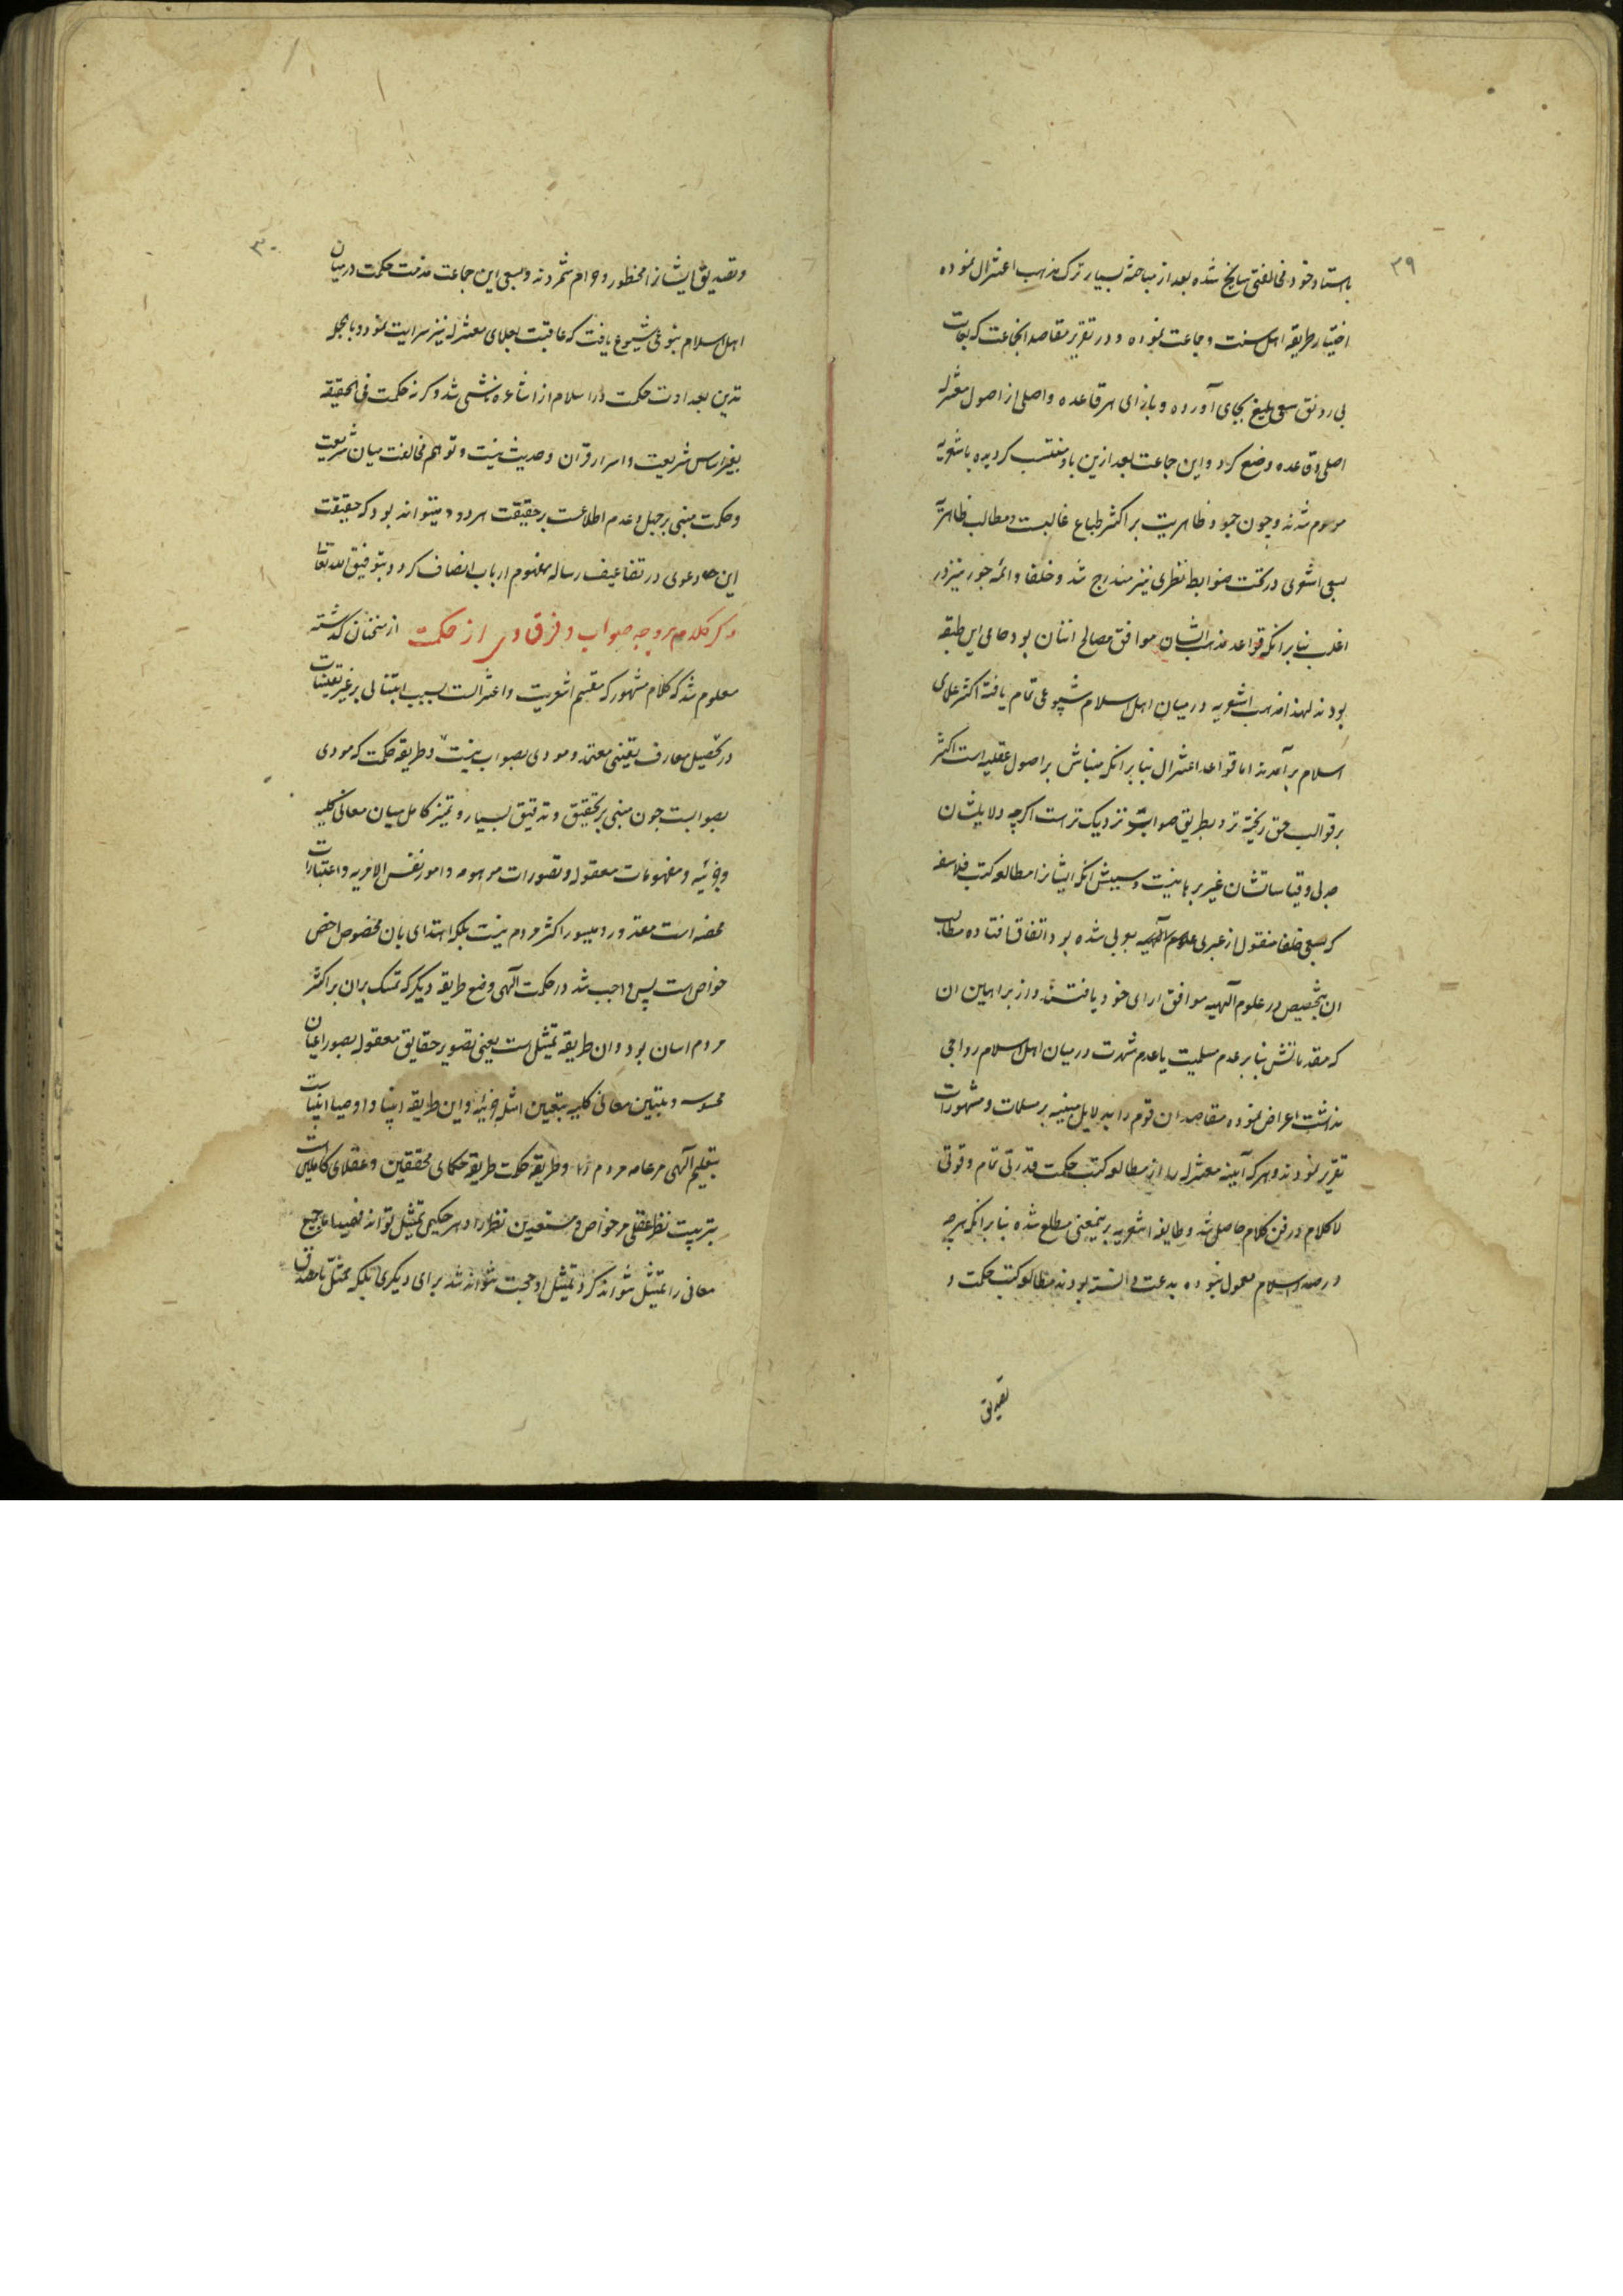 ۲۹
باستاد خود مخالفتی سانح شده بعد از مباحثه بسیار ترک مذهب اعتزال نموده
اختیار طریقه اهل سنت و جماعت نموده و در تقریر مقاصد انجماعت که بغایت
بی رونق سعی بلیغ بجای آورده و بازای هر قاعده و اصلی از اصول معتزله
اصلی و قاعده وضع کرد و این جماعت بعد ازین باو منتسب کردیده باشعریه
موسوم شدند و چون جمود و ظاهریت بر اکثر طباع غالبست و مطالب ظاهرا
بسعی اشعری در تحت ضوابط نظری نیز مندرج شد و خلفا و ائمه جور نیز در
اغلب بنا برانکه قواعد مذهب ایشان موافق مصالح اتنان بود حامی این طبقه
بودند لهذا مذهب اشعریه در میان اهل اسلام شیوعی تمام یافته اکثر علمای
اسلام برآمدند اما قواعد اعتزال بنا برانکه مبناش بر اصول عقلیه است اکثر
بر قوالب حق ریخته تر و بطریق صواب نزدیک تر است اکرچه دلایلشان
جدلی و قیاساتشان غیر برهانیست و سببش انکه ایشانرا مطالعه کتب فلاسفه
که بسعی خلفا منقول از عبری علوم الهیه بعربی شده بود اتفاق افتاده مطالب
ان بتخصیص در علوم آلهیه موافق ارای خود یافتند و از براهین ان
که مقدماتش بنا بر عدم مسلمیت یا عدم شهرت در میان اهل اسلام رواجی
نداشت اعراض نموده مقاصد ان قوم را بدلایل مبنیه بر مسلمات و مشهورات
تقریر نمودند و هر آینه معتزله را از مطالعه کتب حکمت قدرتی تمام و قوتی
لا کلام در فن کلام حاصل شد و طایفه اشعریه برینمعنی مطلع شده بنا برانکه هرچه
در صدر اسلام معمول نبوده بدعت دانسته بودند مطالعه کتب حکمت و
تصدیق
۳۰
و تصدیق ایشانرا محظور و حرام شمردند و بسعی این جماعت مذمت حکمت در میان
اهل اسلام بنوعی شیوع یافت که عاقبت بعلمای معتزله نیز سرایت نمود و بالجمله
تدین بعداوت حکمت در اسلام از اشاعره ناشی شد و کرنه حکمت فی الحقیقه
بغیر اساس شریعت و اسرار قران و حدیث نیست و توهم مخالفت میان شریعت
و حکمت مبنی بر جهل و عدم اطلاعست بر حقیقت هر دو و میتواند بود که حقیقت
این دعوی در تضاعیف رساله مفهوم ارباب انصاف کردد بتوفیق الله تعالی
ذکر کلام بر وجه صواب و فرق وی از حکمت از سخنان کذشته
معلوم شد که کلام مشهور که مقسم اشعریت و اعتزالست بسبب ابتنای بر غیر یقینیات
در تحصیل معارف یقینی معتمد و مودی بصواب نیست و طریقه حکمت که مودی
بصوابست چون مبنی بر تحقیق و تدقیق بسیار و تمیز کامل میان معانی کلیه
و جزئیه و مفهومات معقوله و تصورات موهومه و امور نفس الامریه و اعتبارات
محضه است مقدور و میسور اکثر مردم نیست بلکه اهتدای بان مخصوص اخص
خواص است پس واجب شد در حکمت آلهی وضع طریقه دیکر که تمسک بران بر اکثر
مردم اسان بود و ان طریقه تمثیل است یعنی تصویر حقایق معقوله بصور اعیان
محسوسه و تبیین معانی کلیه بتعیین امثله جزئیه و این طریقه انبیا و اوصیا انبیاست
بتعلیم آلهی مر عامه مردم را و طریقه حکمت طریقه حکمای محققین و عقلای کاملین است
بتربیت نظر عقلی مر خواص و مستعدین نظر را و هر حکیمی تمثیل تواند فهمید اما جمیع
معانی را تمثیل نتواند کرد و تمثیل او حجت نتواند شد برای دیکری بلکه ممثل بامصدق